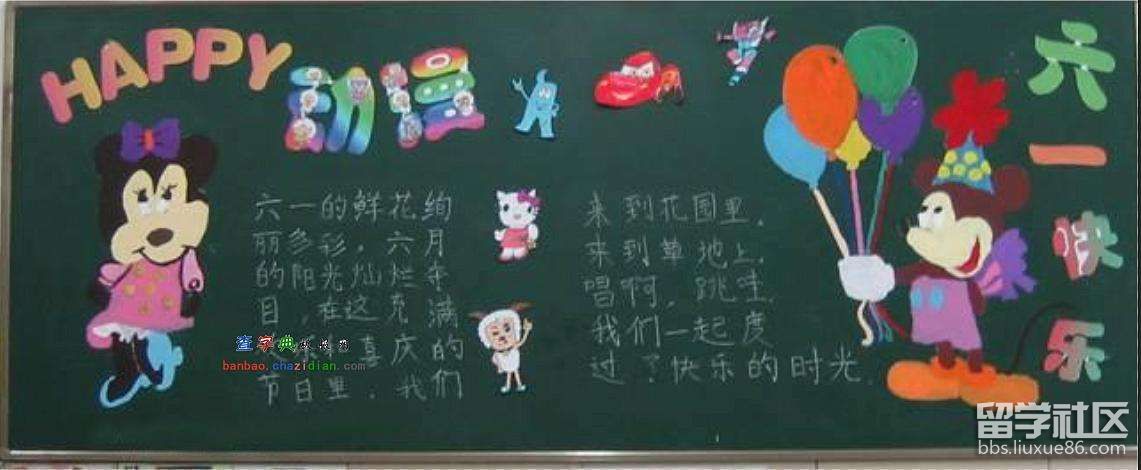 HAPPY
六一快乐
六一的鲜花绚
丽多彩，六月
的阳光灿烂夺
目，在这充满
喜庆的
节日里，我们
来到花园里，
来到草地上，
唱啊，跳哇，
我们一起度
过了快乐的时光。
查字典
banbao.chazidian.com
留学社区
bbs.liuxue86.com